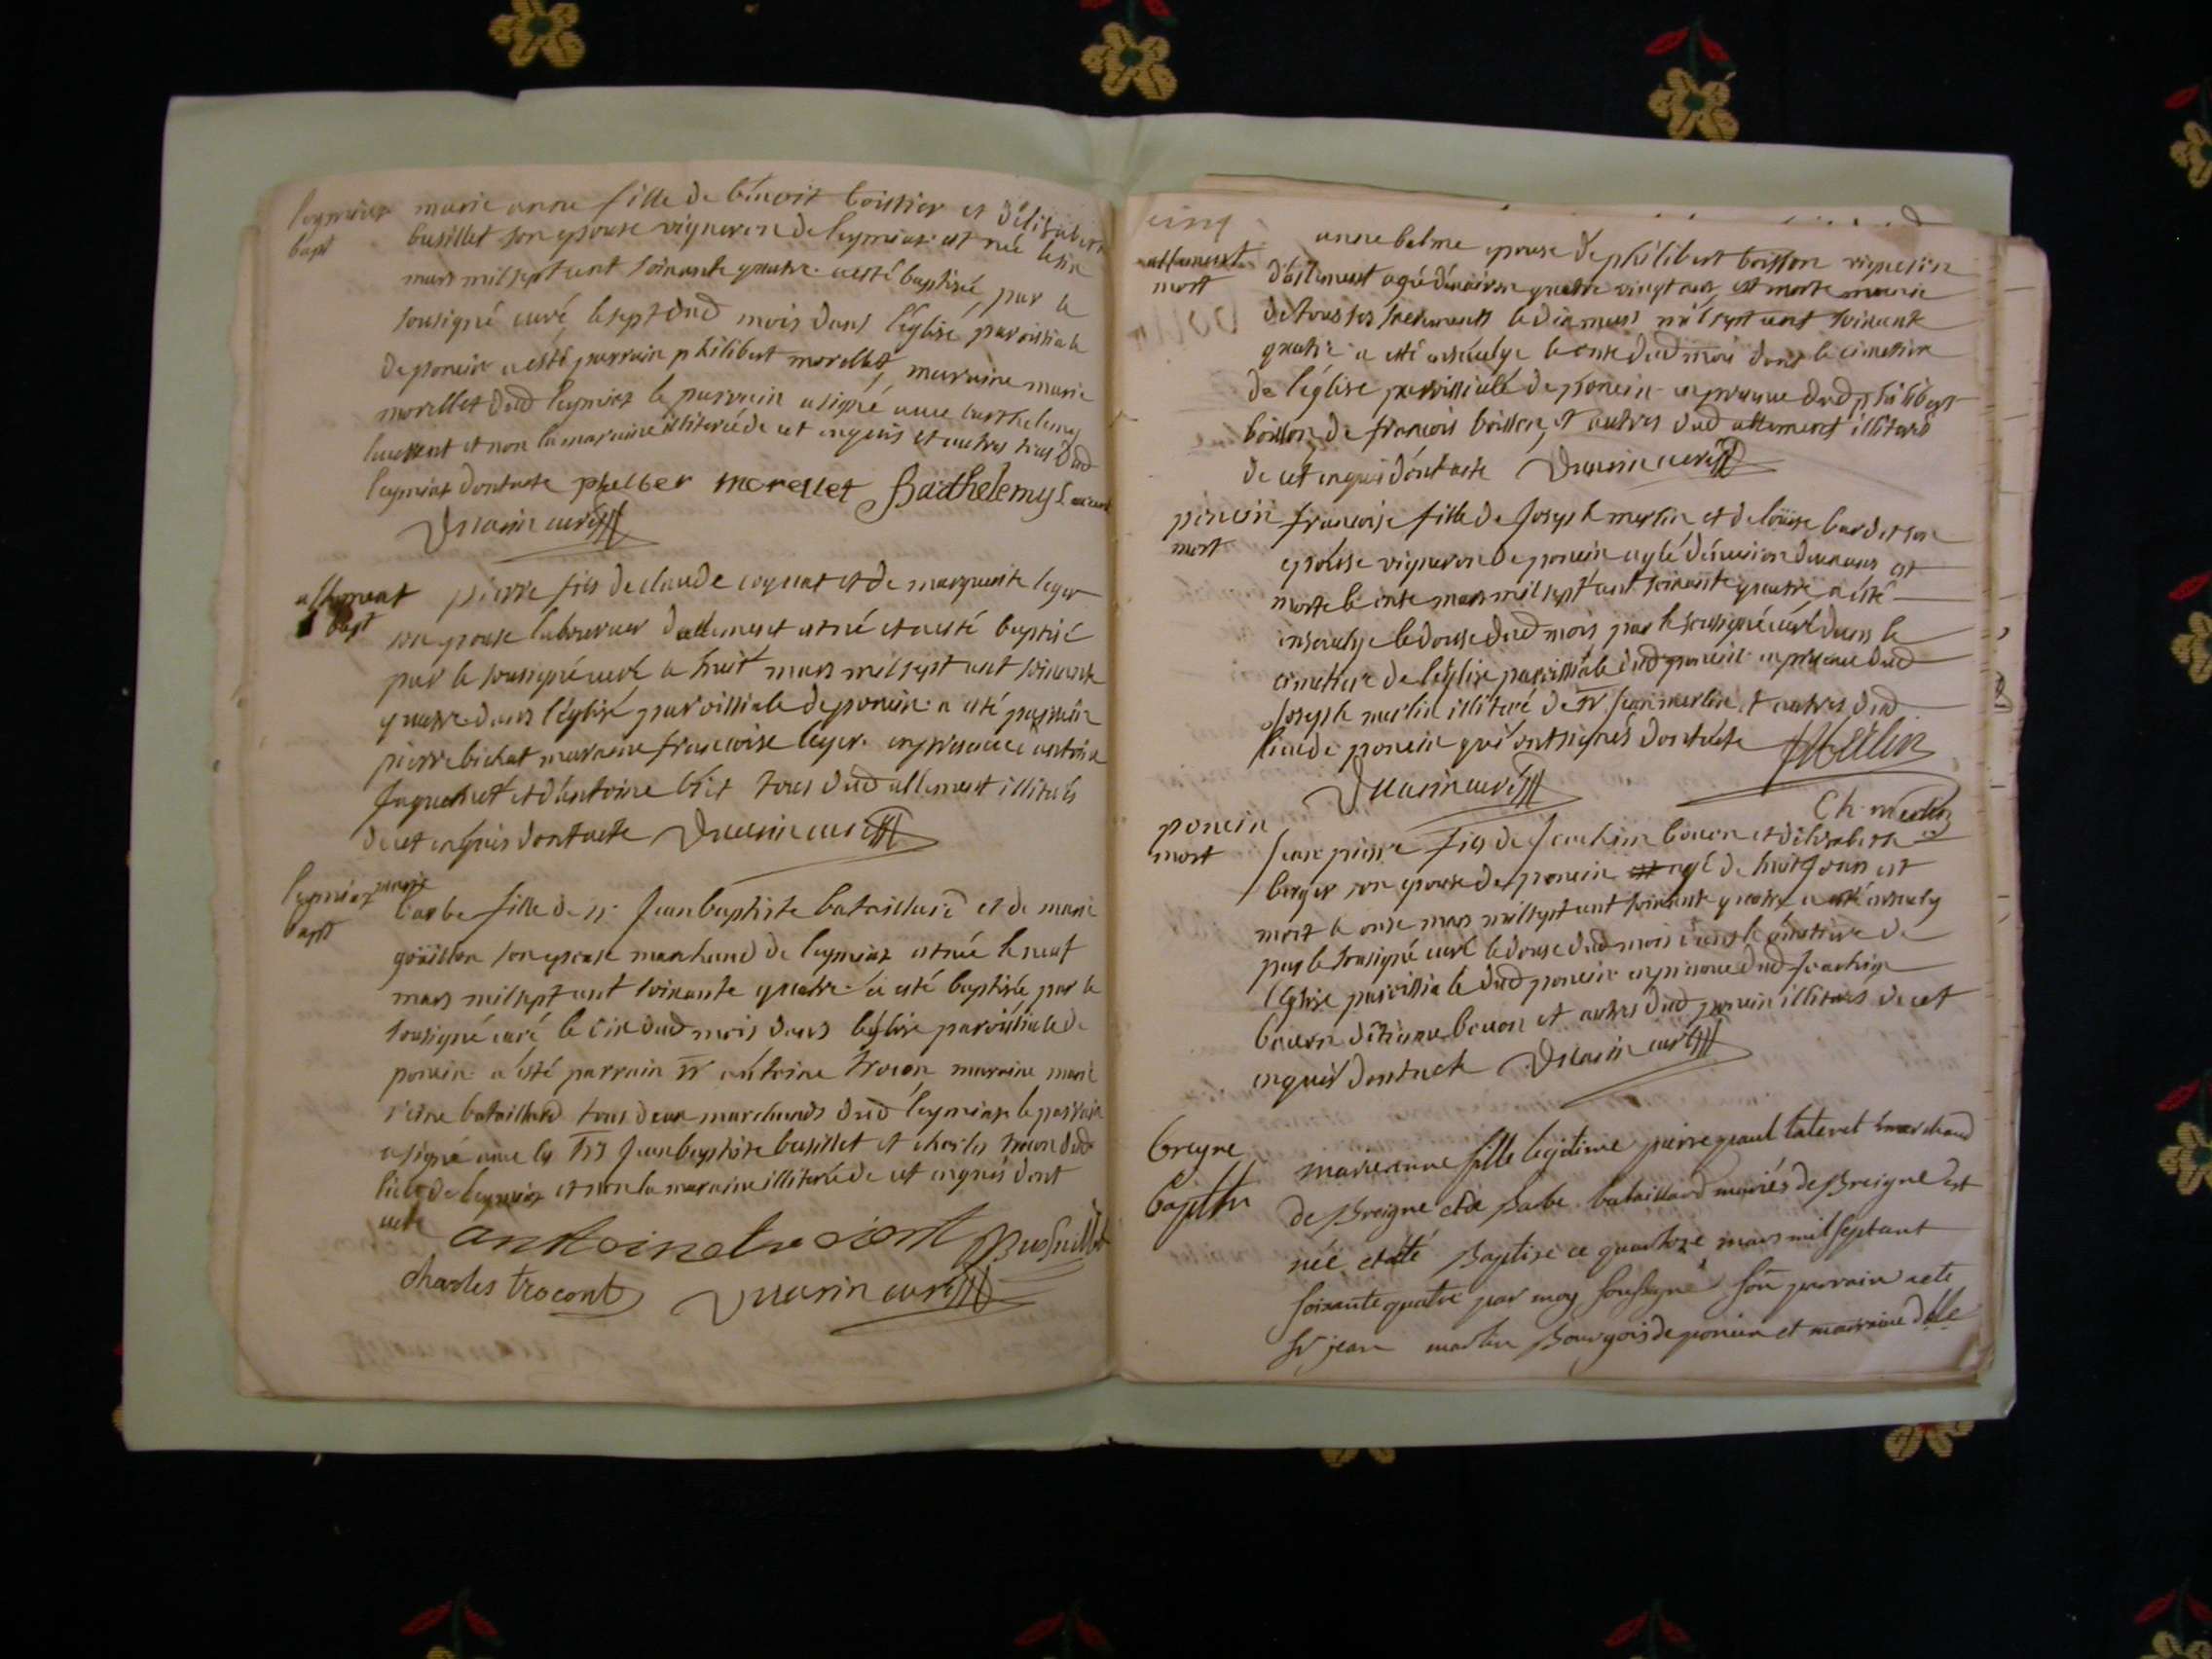 leymiat marie anne fille de benoit boissier et d'elisabeth
bapt busillet son epouse vigneron de leymiat est née le six
mars mil sept cent soixante quatre a esté baptisée par le
sousigné curé le sept dud mois dans l'église paroissiale
de poncin a esté parrain philibert morellet, maraine marie
morellet dud leymiat le parrain a signé avec barthelemy
laurent et non la maraine illiterée de ce enquis et autres tous dud
leymiat dont acte philber morellet Barthelemy Laurent
curé
allement pierre fils de claude coynat et de marguerite leger
bapt son epouse laboureur d'allement est né et a esté baptisé
par le sousigné curé le huit mars mil sept cent soixante
quatre dans l'église paroissiale de poncin a esté parrain
pierre bichat maraine francoise leger en presence d'antoine
et d'antoine tous dud allement illiterés
de ce enquis dont acte curé
leymiat marie
bapt barbe fille de sr Jean baptiste bataillard et de marie
son epouse marchand de leymiat est née le neuf
mars mil sept cent soixante quatre a esté baptisée par le
sousigné curé le dix dud mois dans l'église paroissiale de
poncin a esté parrain sr antoine trocon maraine marie
bataillard tous deux marchands dud leymiat le parrain
a signé avec les srs Jean baptiste busillet et charles trocon dud
lieu de leymiat et non la maraine illiterée de ce enquis dont
acte antoine trocont Busuillet
charles trocont curé
cinq
allement anne balme epouse de philibert boisson vigneron
mort d'allement agée d'environ quatre vingt ans est morte munie
de tous ses sacrements le dix mars mil sept cent soixante
quatre a esté ensevelye le onze dud mois dans le cimetiere
de l'église paroissialle de poncin en presence dud philibert
boisson, de francois boisson et autres dud allement illiterés
de ce enquis dont acte curé
poncin francoise fille de Joseph merlin et de loüise bardet son
mort epouse vigneron de poncin agée d'environ deux ans est
morte le onze mars mil sept cent soixante quatre a esté
ensevelye le douze dud mois par le sousigné curé dans le
cimetiere de l'église paroissiale dud poncin en presence dud
Joseph merlin illiteré de sr Jean merlin et autres dud
lieu de poncin qui ont signés dont acte JMerlin
curé
Ch. merlin
poncin
mort Jean pierre fils de Joachim bouon et d'elisabeth
berger son epouse de poncin agé de huit jours est
mort le onze mars mil sept cent soixante quatre a esté ensevely
par le sousigné curé le douze dud mois dans le cimetiere de
l'église paroissiale dud poncin en presence dud Joachim
bouon d'etienne bouon et autres dud poncin illiterés de ce
enquis dont acte curé
breyne marieanne fille legitime pierre paul tatevet marchand
baptm de Breigne et de Barbe bataillard mariés de Breigne est
née et été Baptisé ce quatorze mars mil sept cent
soixante quatre par moy soussigné son parrain a été
Sr jean martin Bourgois de poncin et marraine dlle